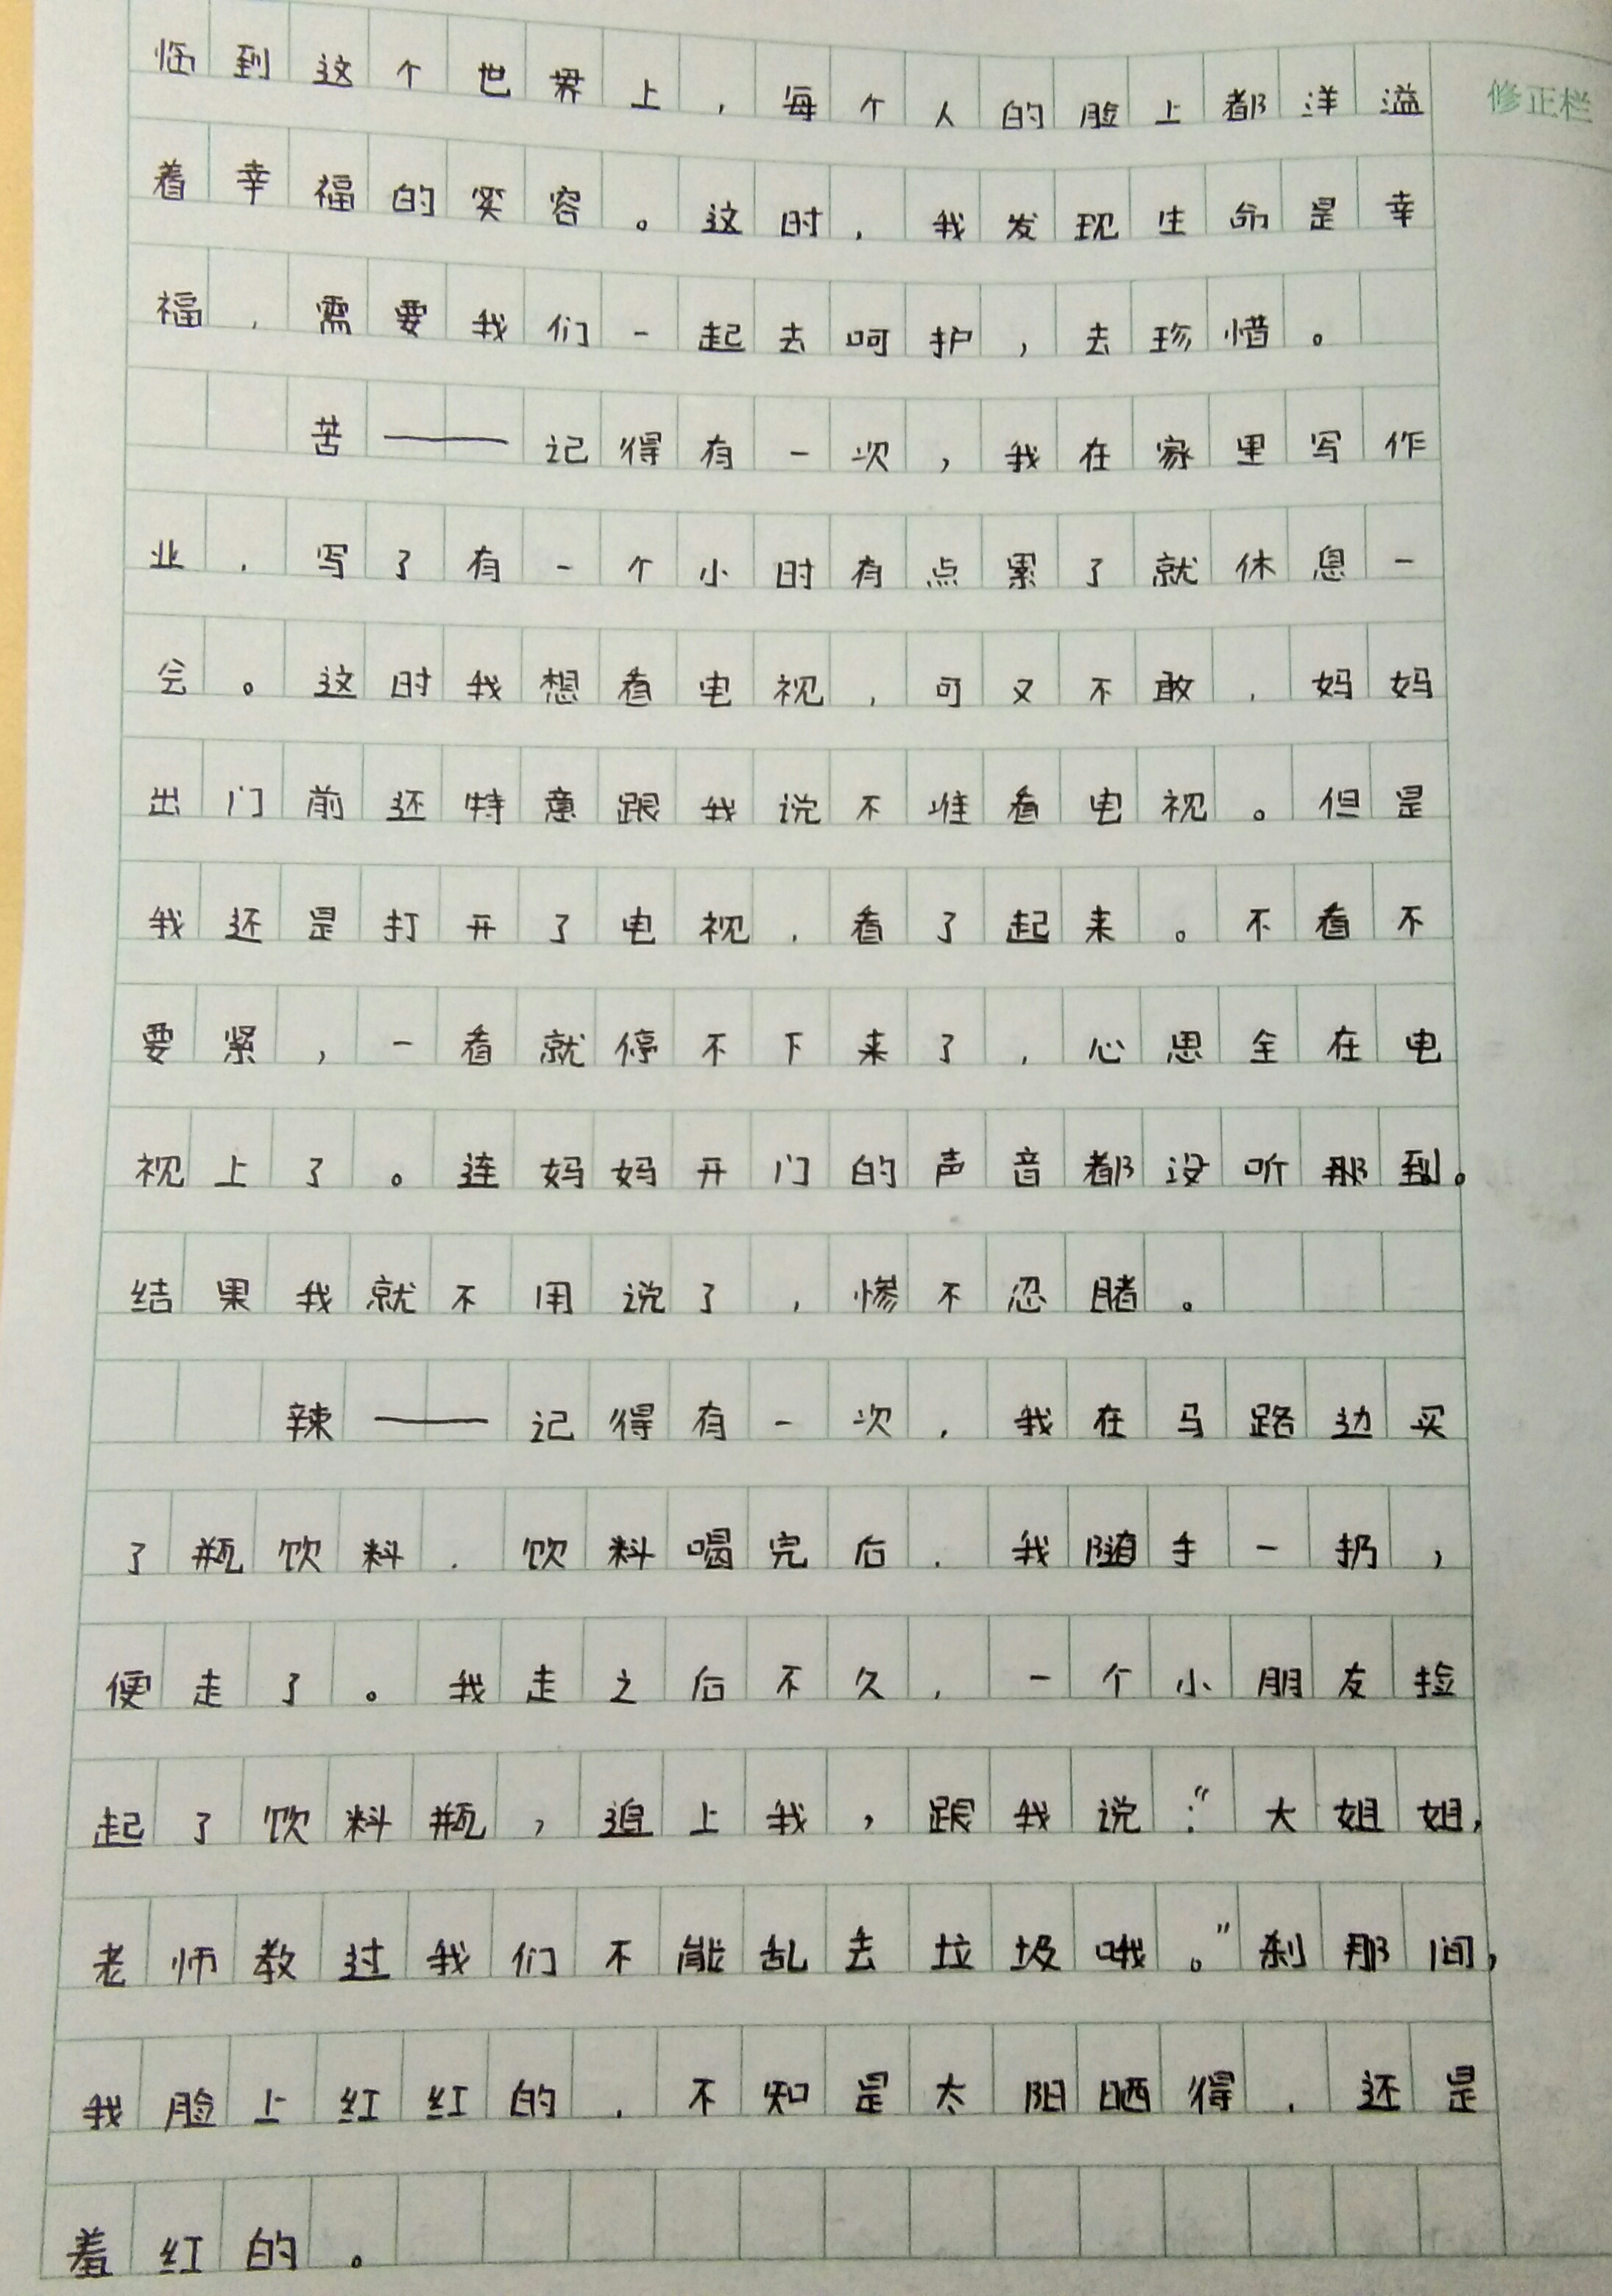 临到这个世界上，每个人的脸上都洋溢
修正栏
着幸福的笑容。这时，我发现生命是幸
福，需要我们一起去呵护，去珍惜。
苦——记得有一次，我在家里写作
业，写了有一个小时有点累了就休息一
会。这时我想看电视，可又不敢，妈妈
出门前还特意跟我说不准看电视。但是
我还是打开了电视，看了起来。不看不
要紧，一看就停不下来了，心思全在电
视上了。连妈妈开门的声音都没听那到。
结果我就不用说了，惨不忍睹。
辣——记得有一次，我在马路边买
了瓶饮料，饮料喝完后，我随手一扔，
便走了。我走之后不久，一个小朋友捡
起了饮料瓶，追上我，跟我说：“大姐姐，
老师教过我们不能乱丢垃圾哦。”刹那间，
我脸上红红的，不知是太阳晒得，还是
羞红的。